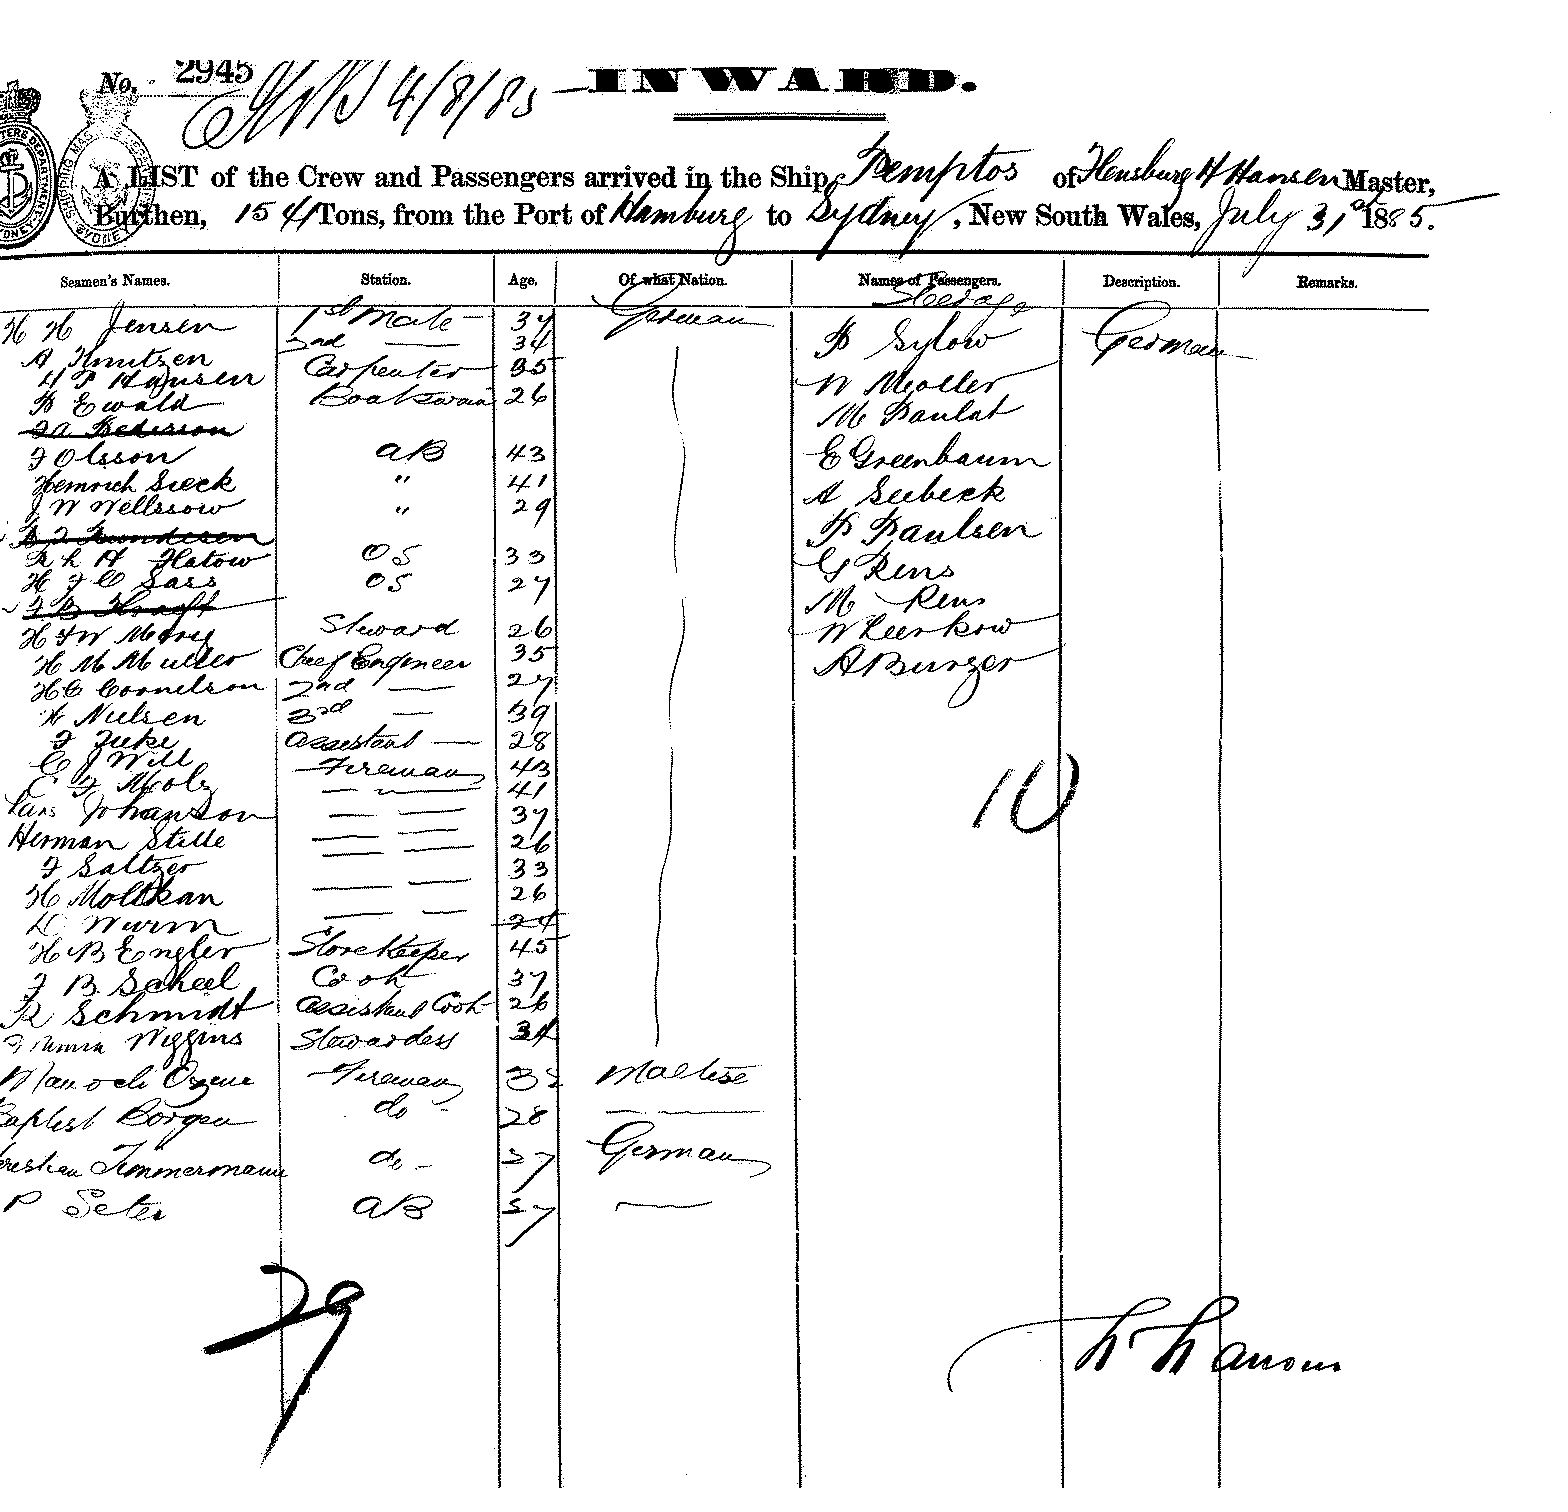 No. 2945
4/8/85
INWARD.
A LIST of the Crew and Passengers arrived in the Ship Pemptos of Flensburg H Hansen Master,
Burthen, 1541 Tons, from the Port of Hamburg to Sydney, New South Wales, July 31st 1885.
Seamen's Names. Station. Age. Of what Nation. Names of Passengers. Description. Remarks.
Steerage
H H Jensen 1st Mate 37 German P Sylow German
A Knutzen 2nd — 34
H P Hansen Carpenter 35 W Moller
P Ewald Boatswain 26 M Paulat
J Olsson AB 43 E Greenbaum
Heinrich Sieck " 41 A Seebeck
J W Wellssow " 29 P Paulsen
R L H Flatow OS 33 G Rens
H J C Sass OS 27 M Rens
H F W Steward 26 W Leerkow
H M Muller Chief Engineer 35 A Burger
H C Cornelson 2nd — 27
H Nielsen 3rd — 39
F Assistant — 28
C J Will Fireman 43
C F — — 41
Lars Johanson — — 37
Herman Stille — — 26
F Saltzer — — 33
H Moltkan — — 26
D Wurm — — 24
H B Engler Storekeeper 45
J B Scheel Cook 37
R Schmidt Assistant Cook 26
Wiggins Stewardess 34
Fireman Maltese
Baptist Borgea do - 28 —
Timmermann do - 27 German
P Seter AB 27 —
10
29
H Hansen